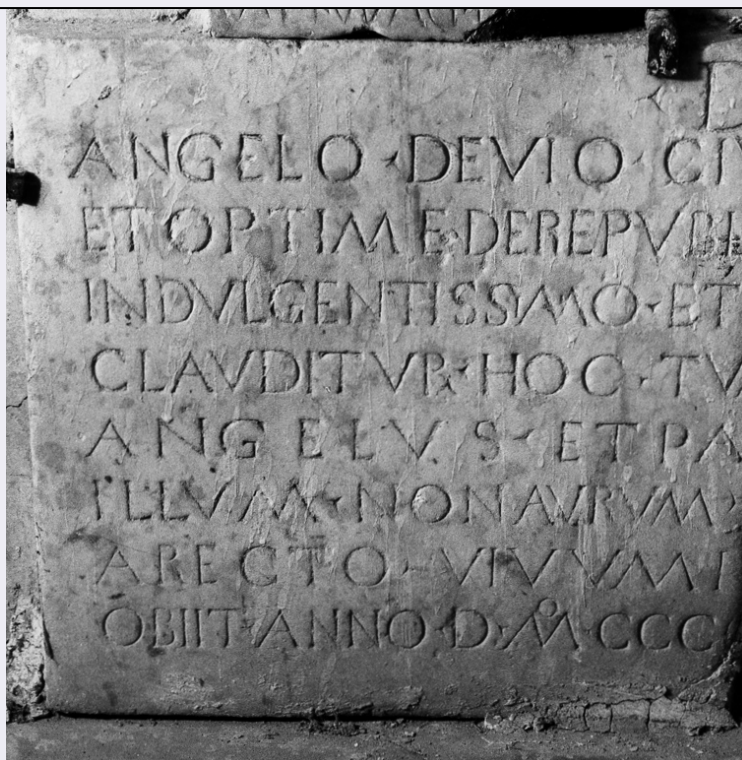 ANGELO · DEVIO · CIV
ET OPTIME · DE REPVBL
INDVLGENTISSIMO · ET
CLAVDITVR · HOC · TV
ANGELVS · ET PA
ILLVM · NON AVRVM
A RECTO · VIVVM
OBIIT · ANNO · D · M CCC